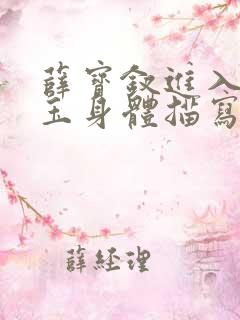 薛寶釵進入
玉身體描寫
薛經理